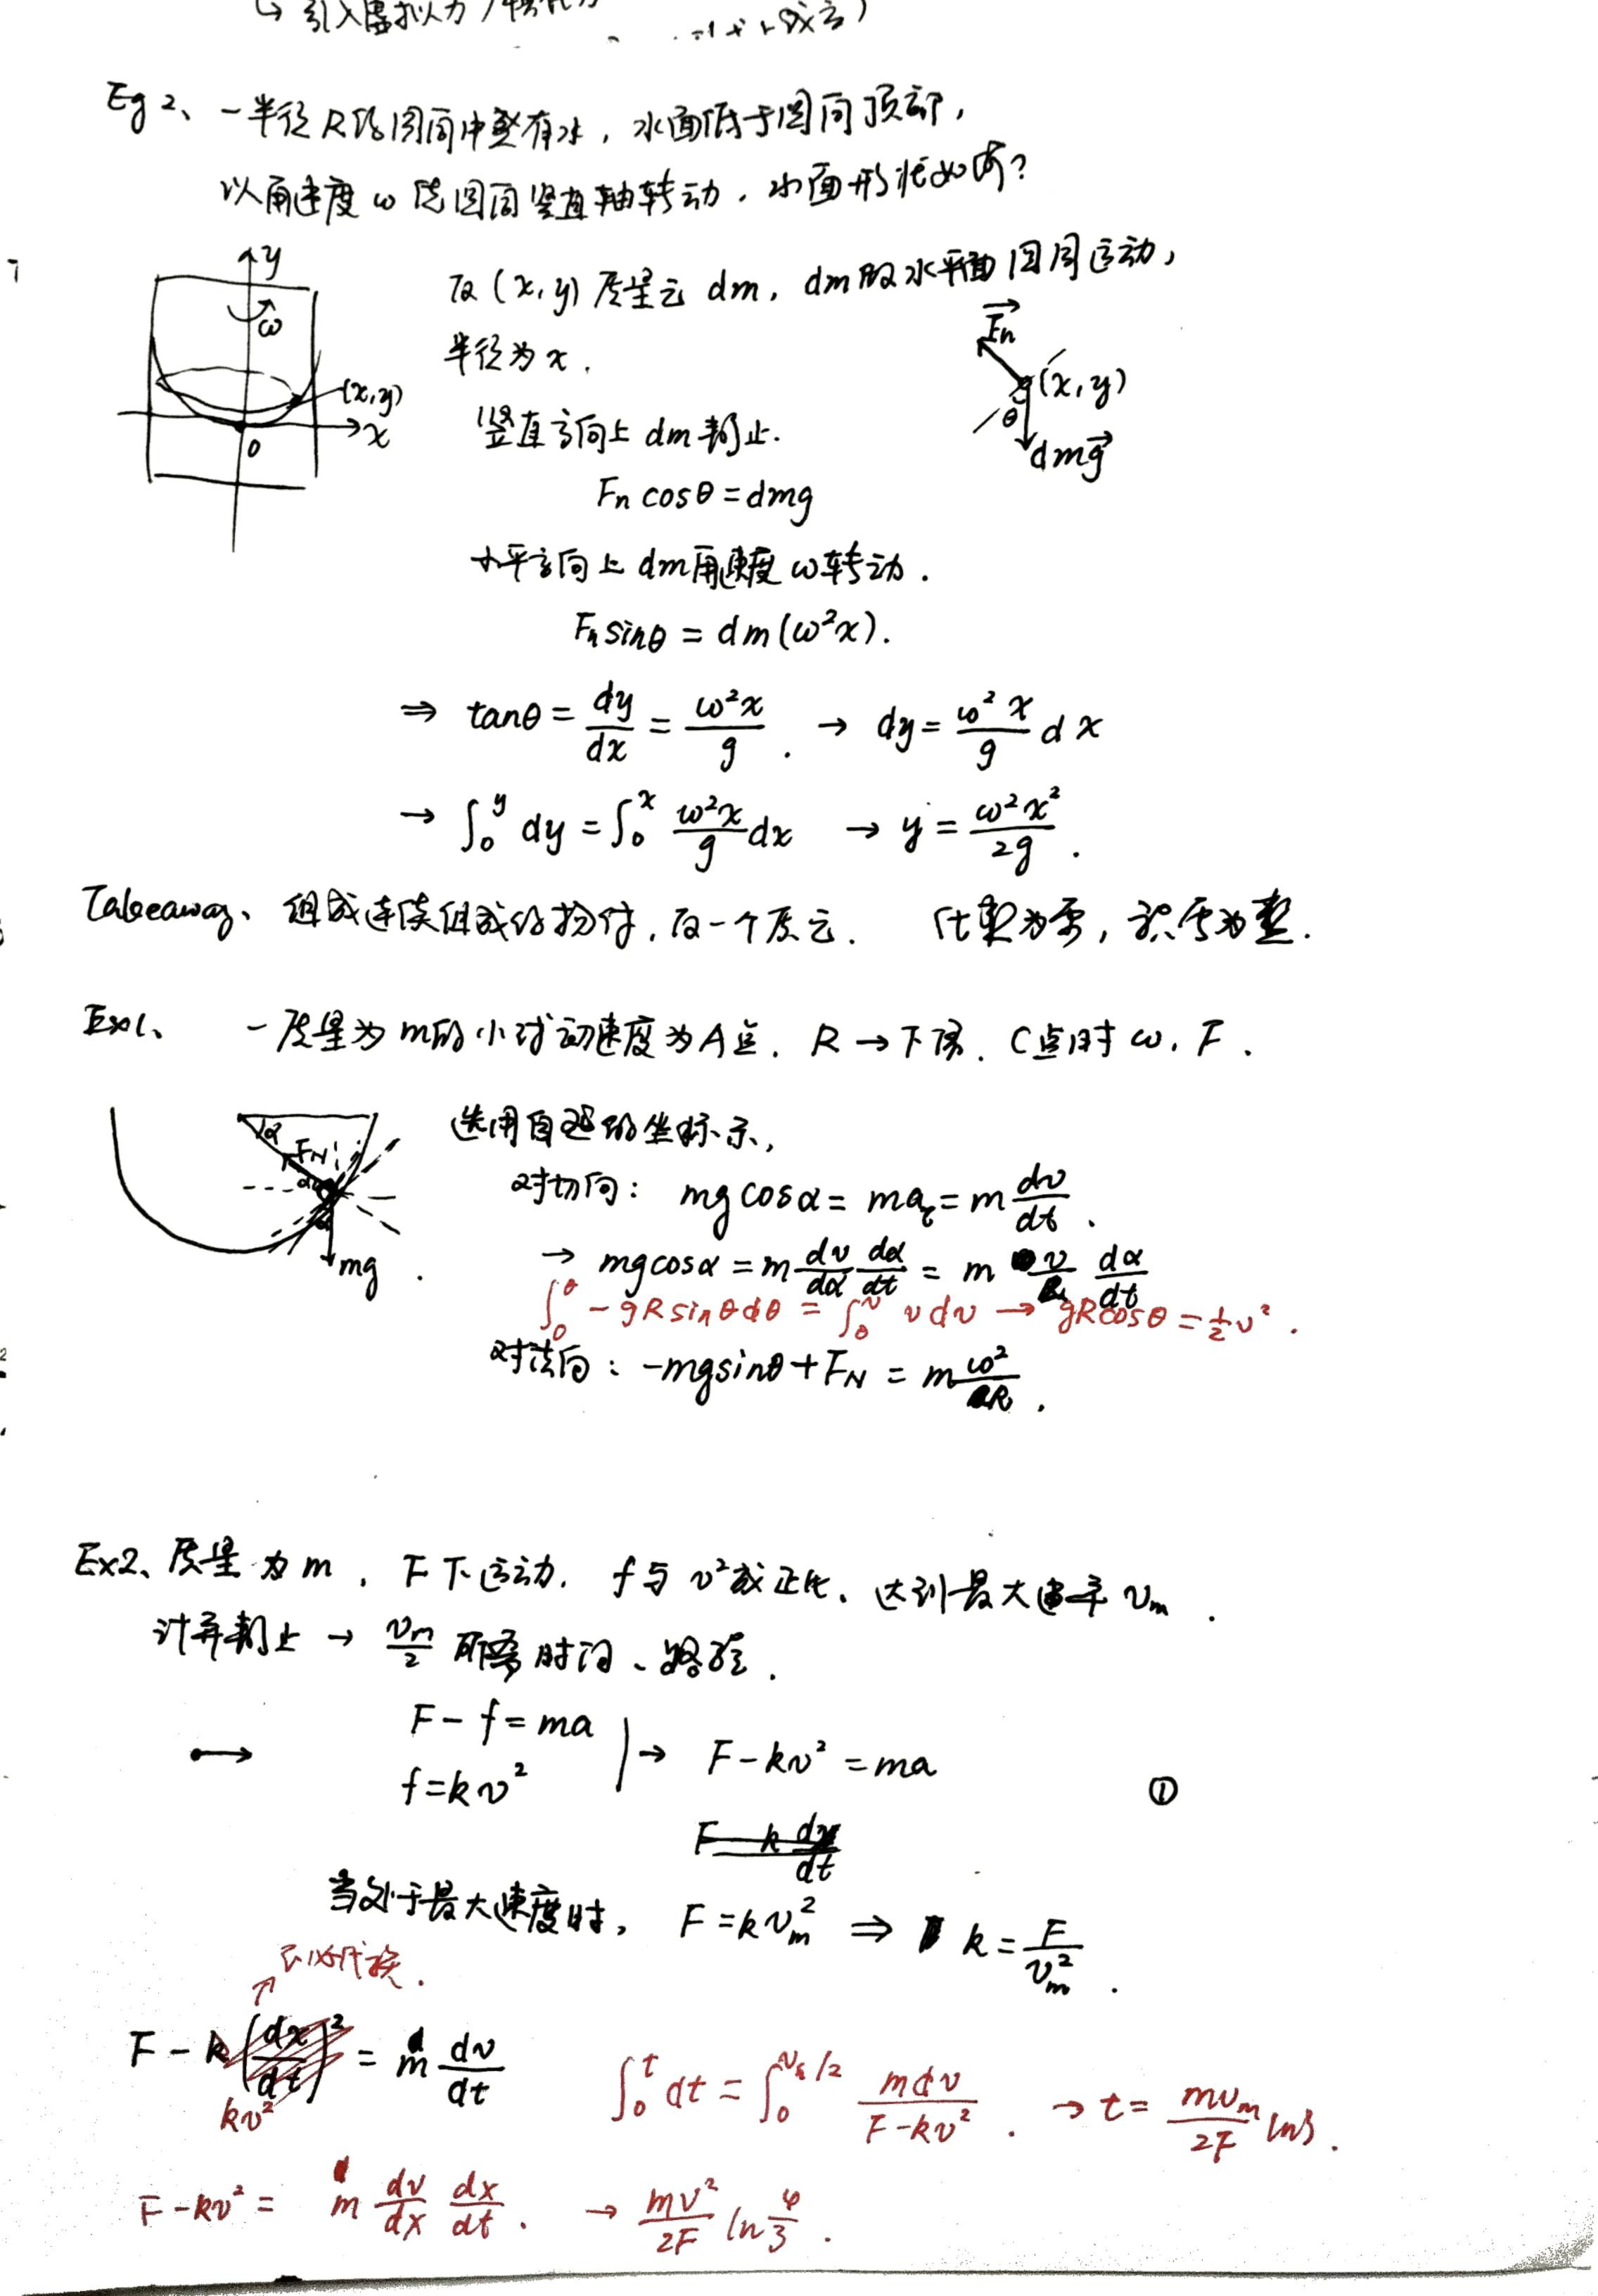 ↳ 引入虚拟力
Eg 2、一半径R的圆筒中装有水，水面低于圆筒顶部，
以角速度ω绕圆筒竖直轴转动，水面形状如何？
y
ω
(x,y)
x
0
取(x,y)质量元 dm，dm做水平面圆周运动，
半径为x．
Fn
(x,y)
θ
dmg
竖直方向上 dm 静止．
Fn cosθ = dmg
水平方向上 dm角速度 ω转动．
Fn sinθ = dm(ω²x).
⇒ tanθ = dy/dx = ω²x/g . → dy = ω²x/g dx
→ ∫₀^y dy = ∫₀^x ω²x/g dx → y = ω²x²/2g .
Takeaway、组成连续组成的物体，取一个质元． 化整为零，积零为整．
Ex1、 一质量为m的小球初速度为A点．R→下滑．C点时 ω，F．
α
FN
α
mg
选用自然的坐标系，
对切向： mg cosα = maτ = m dv/dt .
→ mgcosα = m dv/dα dα/dt = m v/R dα/dt
∫₀^θ -gR sinθdθ = ∫₀^v vdv → gRcosθ = ½v² .
对法向：-mgsinθ + FN = m ω²/R .
Ex2、质量为m，F下运动．f与v²成正比、达到最大速率 vm .
计算静止 → vm/2 所需时间、路程．
F - f = ma
f = kv²
→ F - kv² = ma ①
F - k dx/dt
当处于最大速度时， F = kvm² ⇒ k = F/vm² .
F - k(dx/dt)² = m dv/dt
kv²
∫₀^t dt = ∫₀^(vm/2) mdv/(F-kv²) . → t = mvm/2F ln3 .
F - kv² = m dv/dx dx/dt . → mv²/2F ln 4/3 .